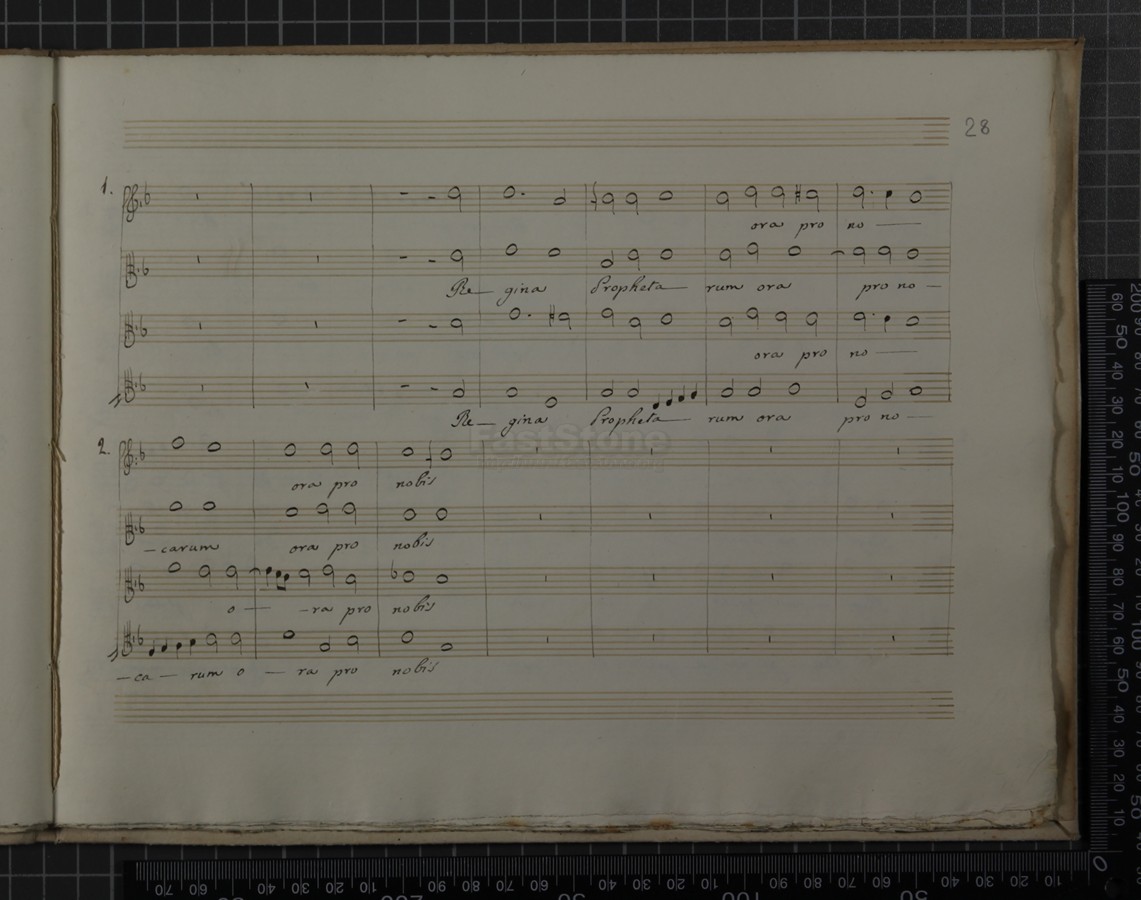 28
1.
ora pro no
Re- gina Propheta- rum ora pro no-
ora pro no
Re- gina Propheta- rum ora pro no
2.
ora pro nobis
-carum ora pro nobis
o -ra pro nobis
-ca- rum o -ra pro nobis
FastStone